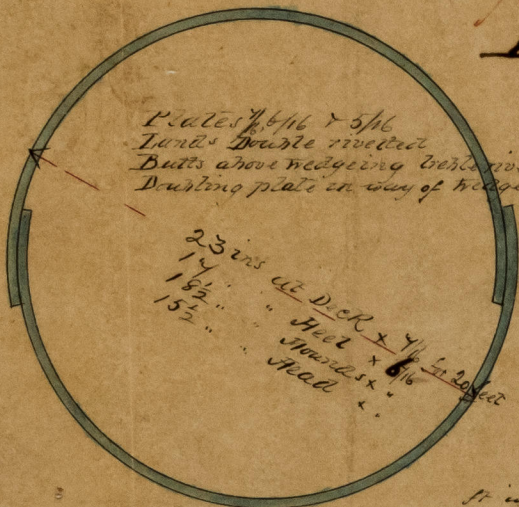 Plates 7/16, 6/16 & 5/16
Lands Double riveted
Butts above wedgeing treble
Doubling plate in way of
23 ins at Deck x 7/16 for 20 feet
17 " " Heel x 6/16 "
18½ " " Hounds x "
15½ " " Head x "